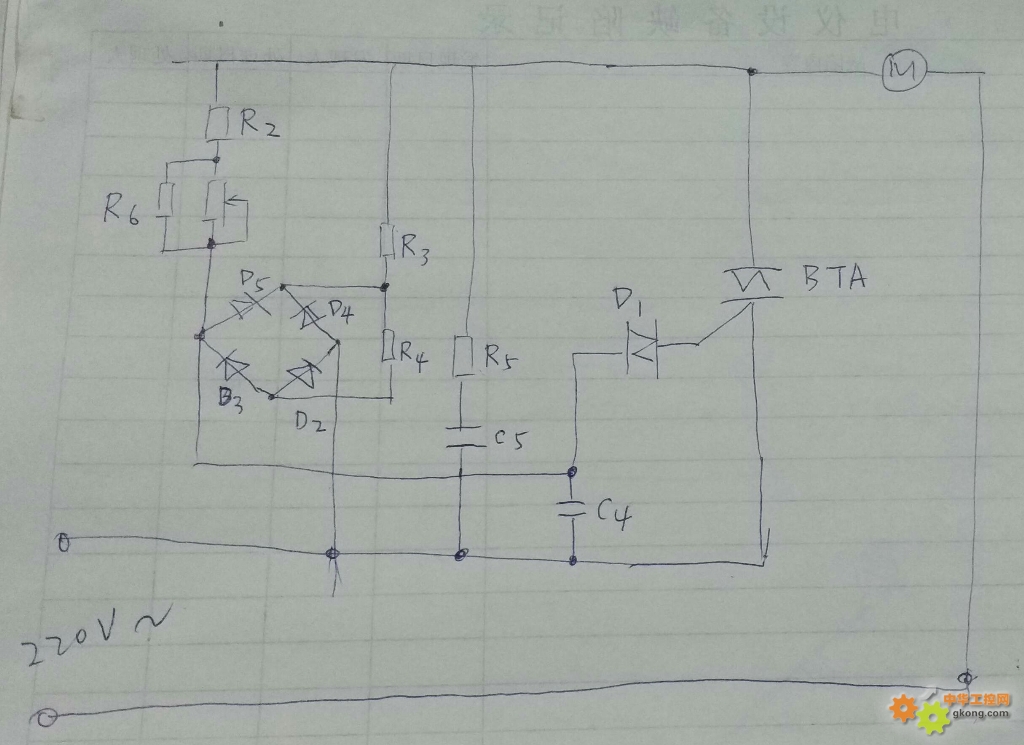 电仪设备缺陷记录
M
R2
R6
R3
D5
D4
BTA
D1
R4
R5
B3
D2
C5
C4
220V~
中华工控网
gkong.com